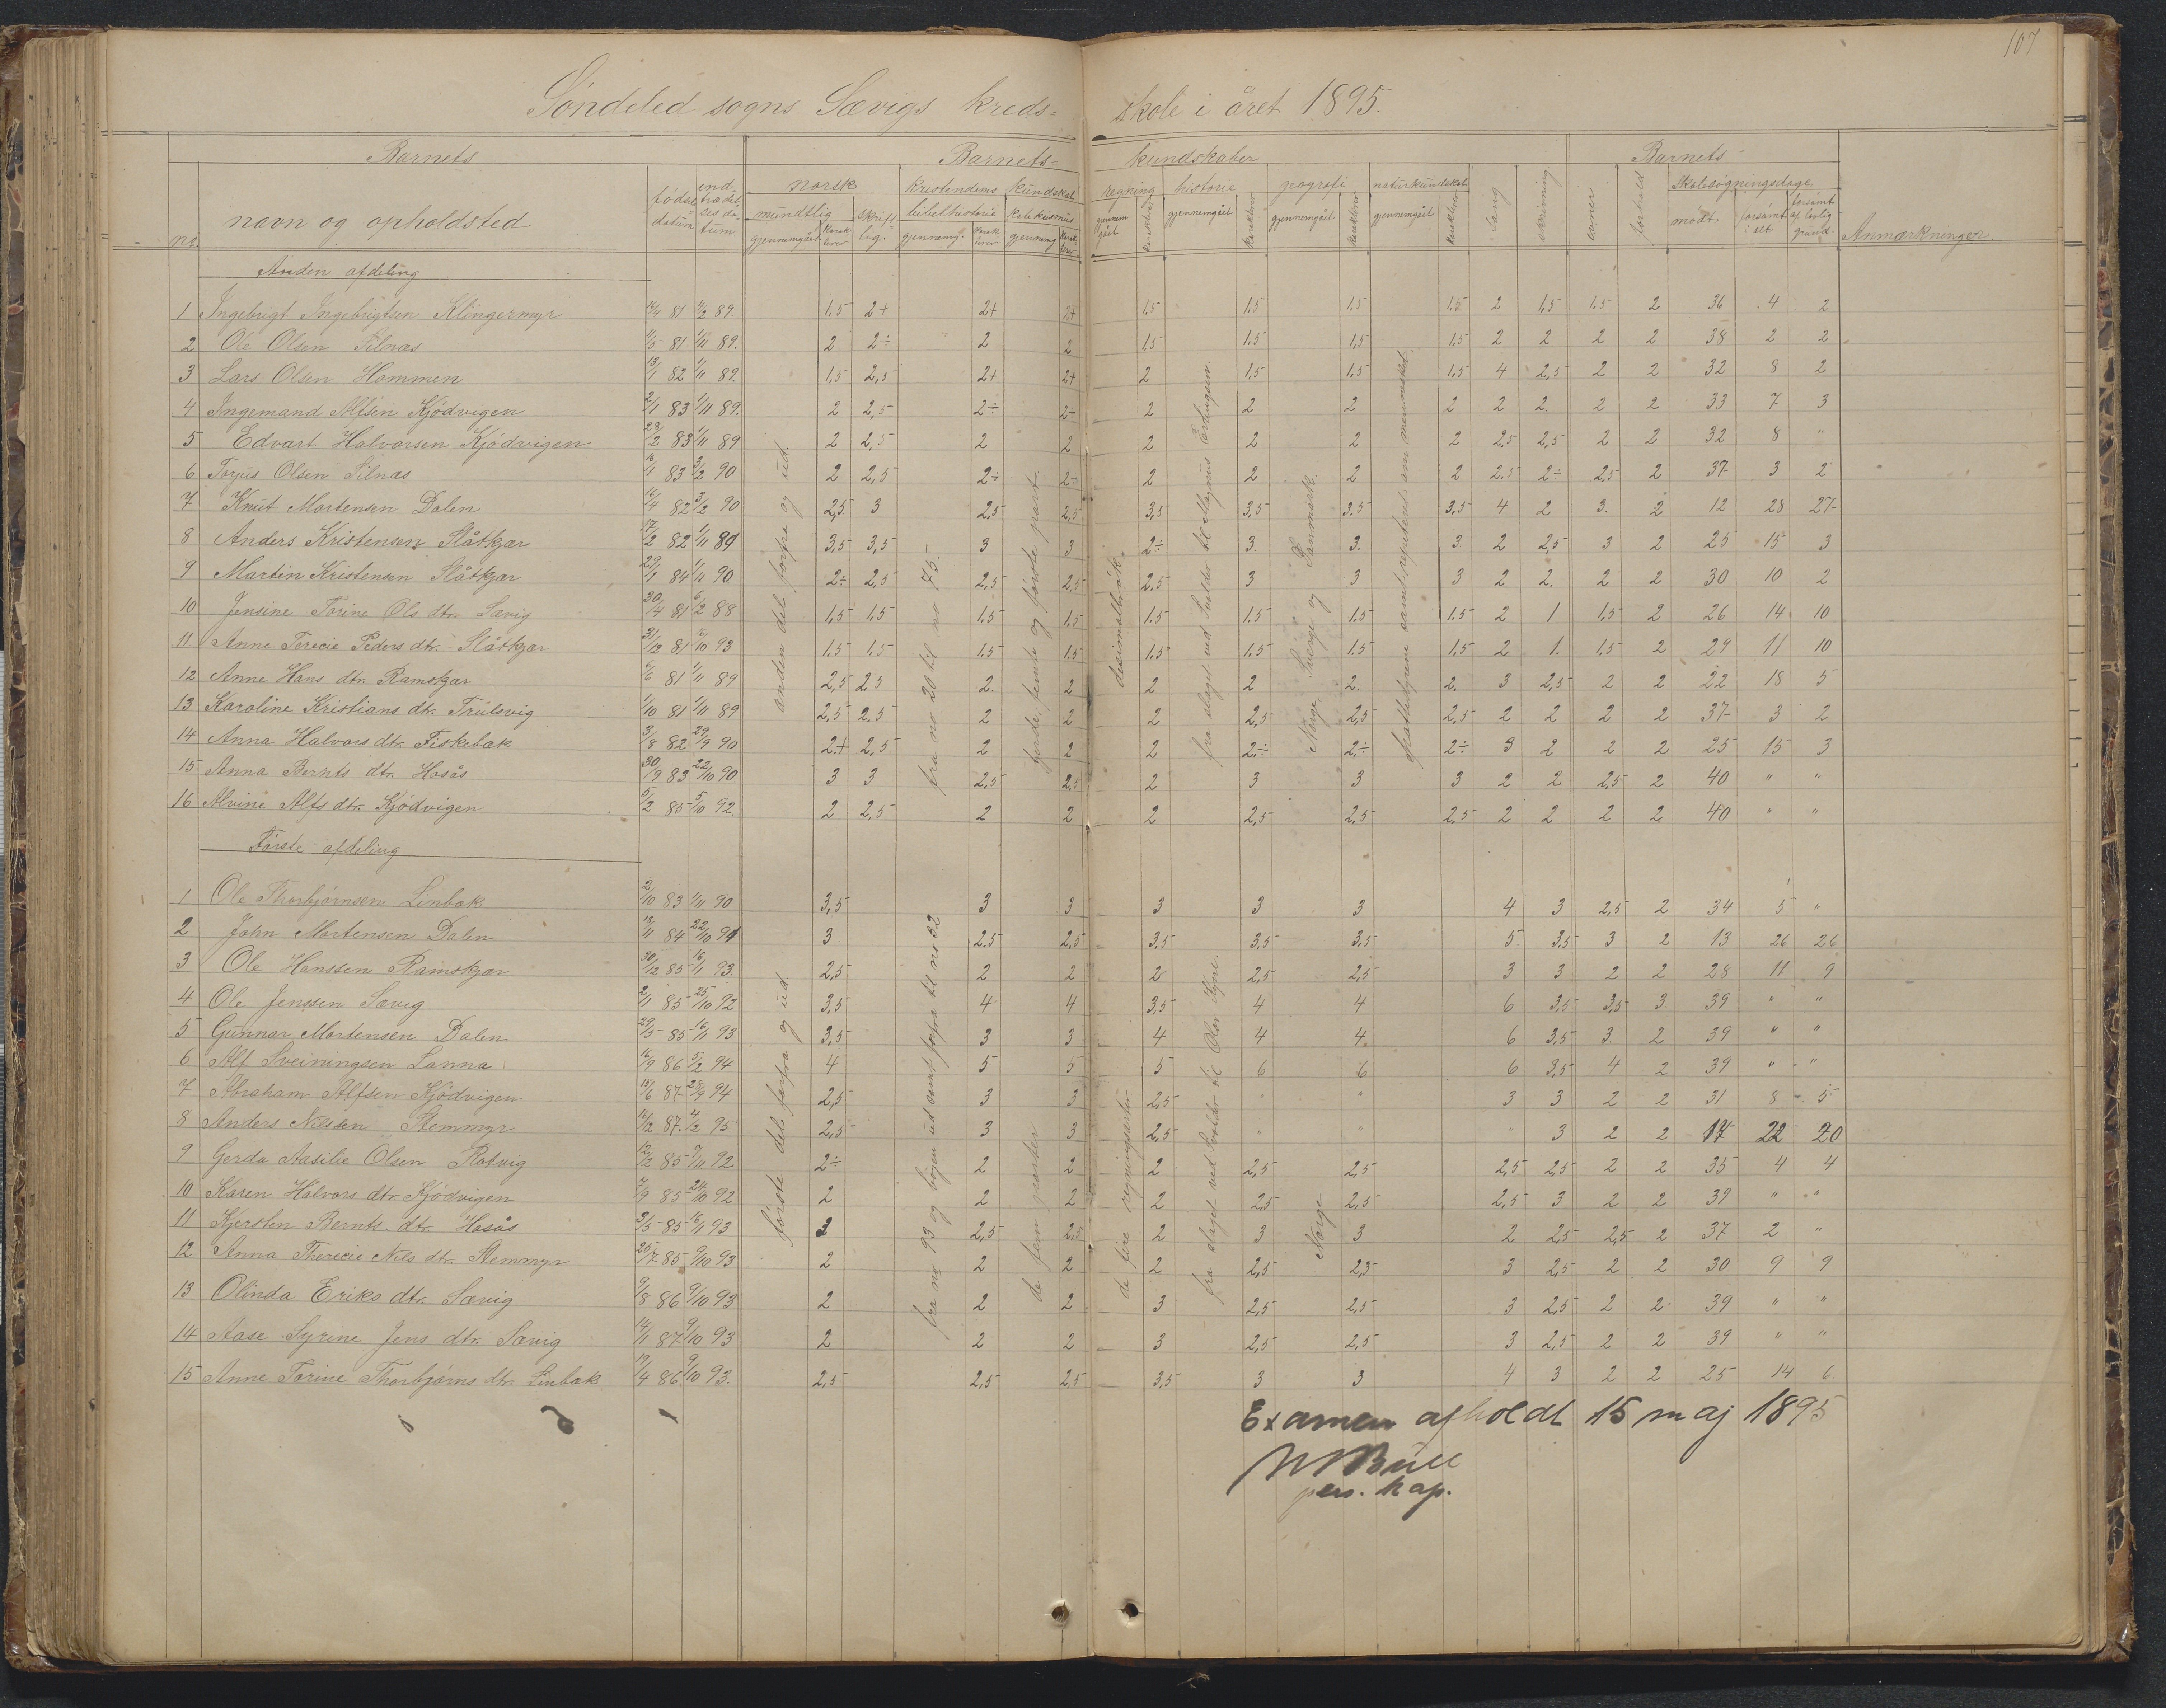 107
Söndeled sogns Sævigs kreds= skole i året 1895.
Barnets Barnets= kundskaber Barnets
no. navn og opholdsted födsels datum indtrædelses datum norsk mundtlig gjennemgået karakterer skriftlig. kristendoms kundskab bibelhistorie gjennemg. karakterer katekismus gjennemg karakterer regning gjennemgået karakterer historie gjennemgået karakterer geografi gjennemgået karakterer naturkundskab gjennemgået karakterer Sang skrivning evner forhold Skolesögningsdage mödt forsömt i alt forsömt af lovlig grund. Anmærkninger
Anden afdeling
1 Ingebrigt Ingebrigtsen Klingermyr 14/4 81 4/2 89. 1,5 2+ 2+ 2+ 1,5 1,5 1,5 1,5 2 1,5 1,5 2 36 4 2
2 Ole Olsen Silnæs 11/5 81 1/11 89. 2 2÷ 2 2 1,5 1,5 1,5 1,5 2 2 2 2 38 2 2
3 Lars Olsen Hommen 13/1 82 1/11 89. 1,5 2,5 2+ 2+ 2 1,5 1,5 1,5 4 2,5 2 2 32 8 2
4 Ingemand Alfsen Kjödvigen 2/1 83 1/11 89. 2 2,5 2÷ 2÷ 2 2 2 2 2 2. 2 2 33 7 3
5 Edvart Halvorsen Kjödvigen 28/2 83 1/11 89 2 2,5 2 2 2 2 2 2 2,5 2,5 2 2 32 8 "
6 Torjus Olsen Silnæs 16/1 83 3/2 90 2 2,5 2÷ 2÷ 2 2 2 2 2.5 2÷ 2,5 2 37 3 2
7 Knut Mortensen Dalen 16/4 82 3/2 90 2,5 3 2,5 2,5 3,5 3,5 3.5 3,5 4 2 3. 2 12 28 27
8 Anders Kristensen Slåtkjær 17/2 82 1/11 89 3,5 3,5 3 3 2÷ 3. 3. 3. 2 2,5 3 2 25 15 3
9 Martin Kristensen Slåtkjær 29/1 84 1/11 90 2÷ 2,5 2,5 2,5 2,5 3 3 3 2 2. 2 2 30 10 2
10 Jensine Torine Ols dtr. Sævig 30/4 81 6/2 88 1,5 1,5 1,5 1,5 1,5 1.5 1,5 1.5 2 1 1,5 2 26 14 10
11 Anne Terecie Peders dtr. Slåtkjær 31/12 81 2/10 93 1.5 1.5 1,5 1.5 1,5 1,5 1,5 1,5 2 1. 1,5 2 29 11 10
12 Anne Hans dtr. Ramskjær 6/6 81 1/11 89 2,5 2 5 2. 2 2 2 2. 2. 3 2,5 2 2 22 18 5
13 Karoline Kristians dtr. Trülsvig 1/10 81 1/11 89 2,5 2,5 2 2 2 2,5 2,5 2,5 2 2 2 2 37 3 2
14 Anna Halvors dtr. Fiskebæk 3/8 82 29/9 90 2,+ 2,5 2 2 2 2÷ 2÷ 2÷ 3 2 2 2 25 15 3
15 Anna Bernts dtr. Hosås 30/9 83 22/10 90 3 3 2,5 2,5 2 3 3 3 2 2 2,5 2 40 " "
16 Alvine Alfs dtr. Kjödvigen 5/2 85 5/10 92. 2 2,5 2 2 2 2,5 2,5 2,5 2 2 2 2 40 " "
anden del forfra og ud.
fra no 20 til no 75.
fjerde, femte og förste part
desimalbrök.
fra slaget ved Svolder til Magnus Erlingsen.
Norge, Sverige og Danmark.
Første afdeling
1 Ole Thorbjörnsen Linbæk 2/10 83 1/11 90 3,5 3 3 3 3 3 4 3 2,5 2 34 5 "
2 John Mortensen Dalen 18/11 84 22/10 91 3 2.5 2,5 3,5 3,5 3,5 5 3,5 3 2 13 26 26
3 Ole Hanssen Ramskjær 30/12 85 16/1 93. 2,5 2 2 2 2,5 2,5 3 3 2 2 28 11 9
4 Ole Jenssen Sævig 2/11 85 25/10 92 3,5 4 4 3,5 4 4 6 3,5 3,5 3. 39 " "
5 Gunnar Mortensen Dalen 29/5 85 16/1 93 3,5 3 3 4 4 4. 6 3,5 3. 2 39 " "
6 Alf Sveiningsen Lanna 16/9 86 5/2 94 4 5 5 5 6 6 6 3,5 4 2 39 " "
7 Abraham Alfsen Kjödvigen 15/6 87 28/9 94 2,5 3 3 2,5 " " 3 3 2 2 31 8 5
8 Anders Nilssen Stemmyr 16/12 87. 4/2 95 2,5 3 3 2,5 " " " 3 2 2 17 22 20
9 Gerda Aasilie Olsen Rotvig 12/2 85 7/11 92 2÷ 2 2 2 2,5 2,5 2,5 2,5 2 2 35 4 4
10 Karen Halvors dtr. Kjödvigen 7/9 85 24/10 92 2 2 2 2 2,5 2,5 2,5 3 2 2 39 " "
11 Kjersten Bernts dtr. Hosås 3/5 85 16/1 93 3 2,5 2,5 2 3 3 2 2,5 2,5 2 37 2 "
12 Anna Therecie Nils dtr. Stemmyr 25/7 85 9/10 93 2 2 2 2 2,5 2,5 3 2,5 2 2 30 9 9
13 Olinda Eriks dtr. Sævig 9/8 86 9/10 93 2 2 2 3 2,5 2,5 3 2,5 2 2 39 " "
14 Aase Syrine Jens dtr. Sævig 14/11 87 9/10 93 2 2 2 3 2,5 2,5 3 2,5 2 2 39 " "
15 Anne Torine Thorbjörns dtr. Linbæk 19/4 86 9/10 93. 2,5 2,5 2,5 3,5 3 3 4 3 2 2 25 14 6.
förste del forfra og ud.
de fem parter
de fire regningsarter
fra slaget ved Svolder til Olav Kyrre.
Norge
Examen afholdt 15 maj 1895
Bull
pers. kap.